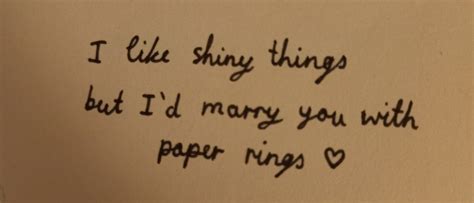 I like shiny things
but I'd marry you with
paper rings ♡